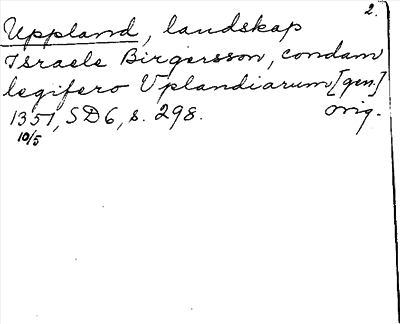 2.
Uppland, landskap
Israele Birgersson, condam
legifero Uplandiarum [gen.]
1351, SD6, s. 298. orig.
10/5